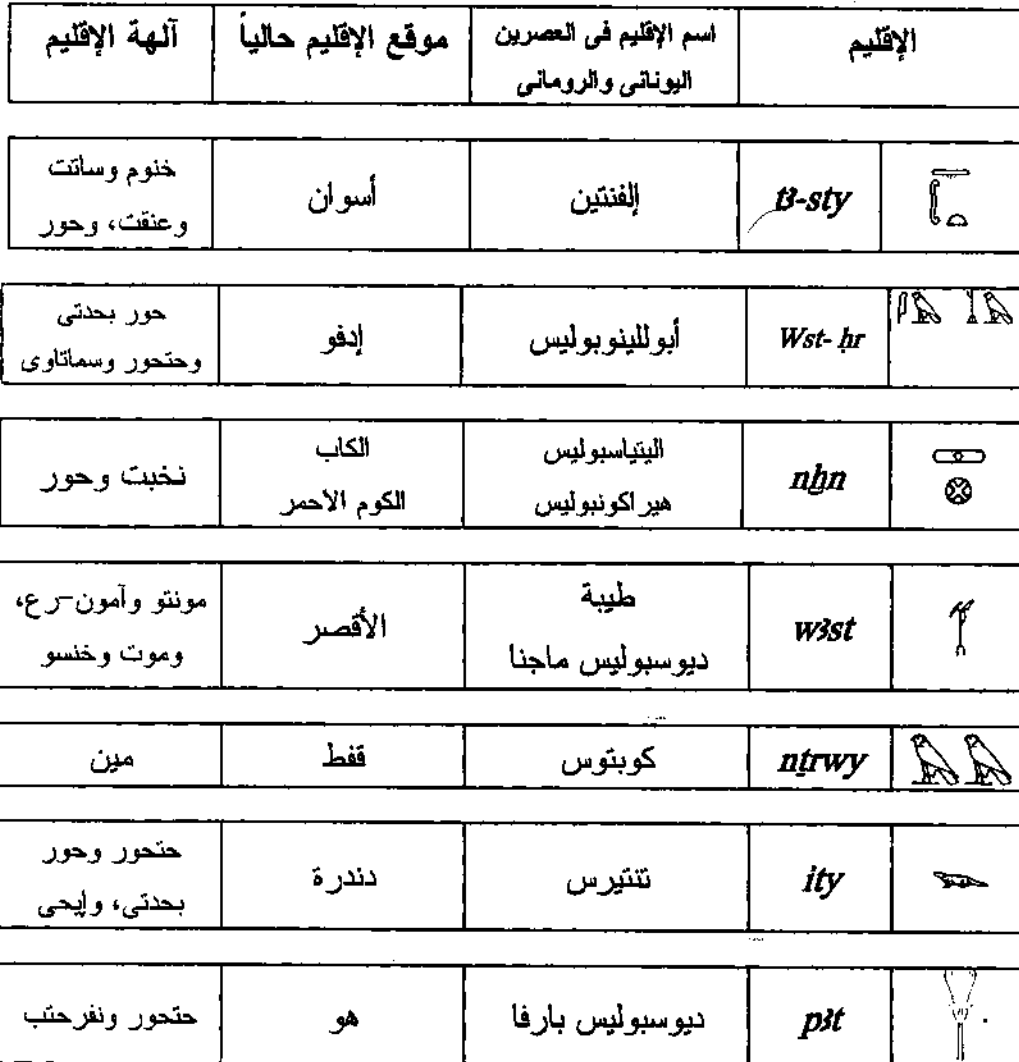 الإقليم
اسم الإقليم فى العصرين
اليونانى والرومانى
موقع الإقليم حالياً
آلهة الإقليم
tꜣ-sty
إلفنتين
أسوان
خنوم وساتت
وعنقت، وحور
Wst- ḥr
أبوللينوبوليس
إدفو
حور بحدتى
وحتحور وسماتاوى
nẖn
اليتياسبوليس
هيراكونبوليس
الكاب
الكوم الاحمر
نخبت وحور
wꜣst
طيبة
ديوسبوليس ماجنا
الأقصر
مونتو وآمون-رع،
وموت وخنسو
nṯrwy
كوبتوس
قفط
مين
ity
تنتيرس
دندرة
حتحور وحور
بحدتى، وإيحى
pꜣt
ديوسبوليس بارفا
هو
حتحور ونفرحتب